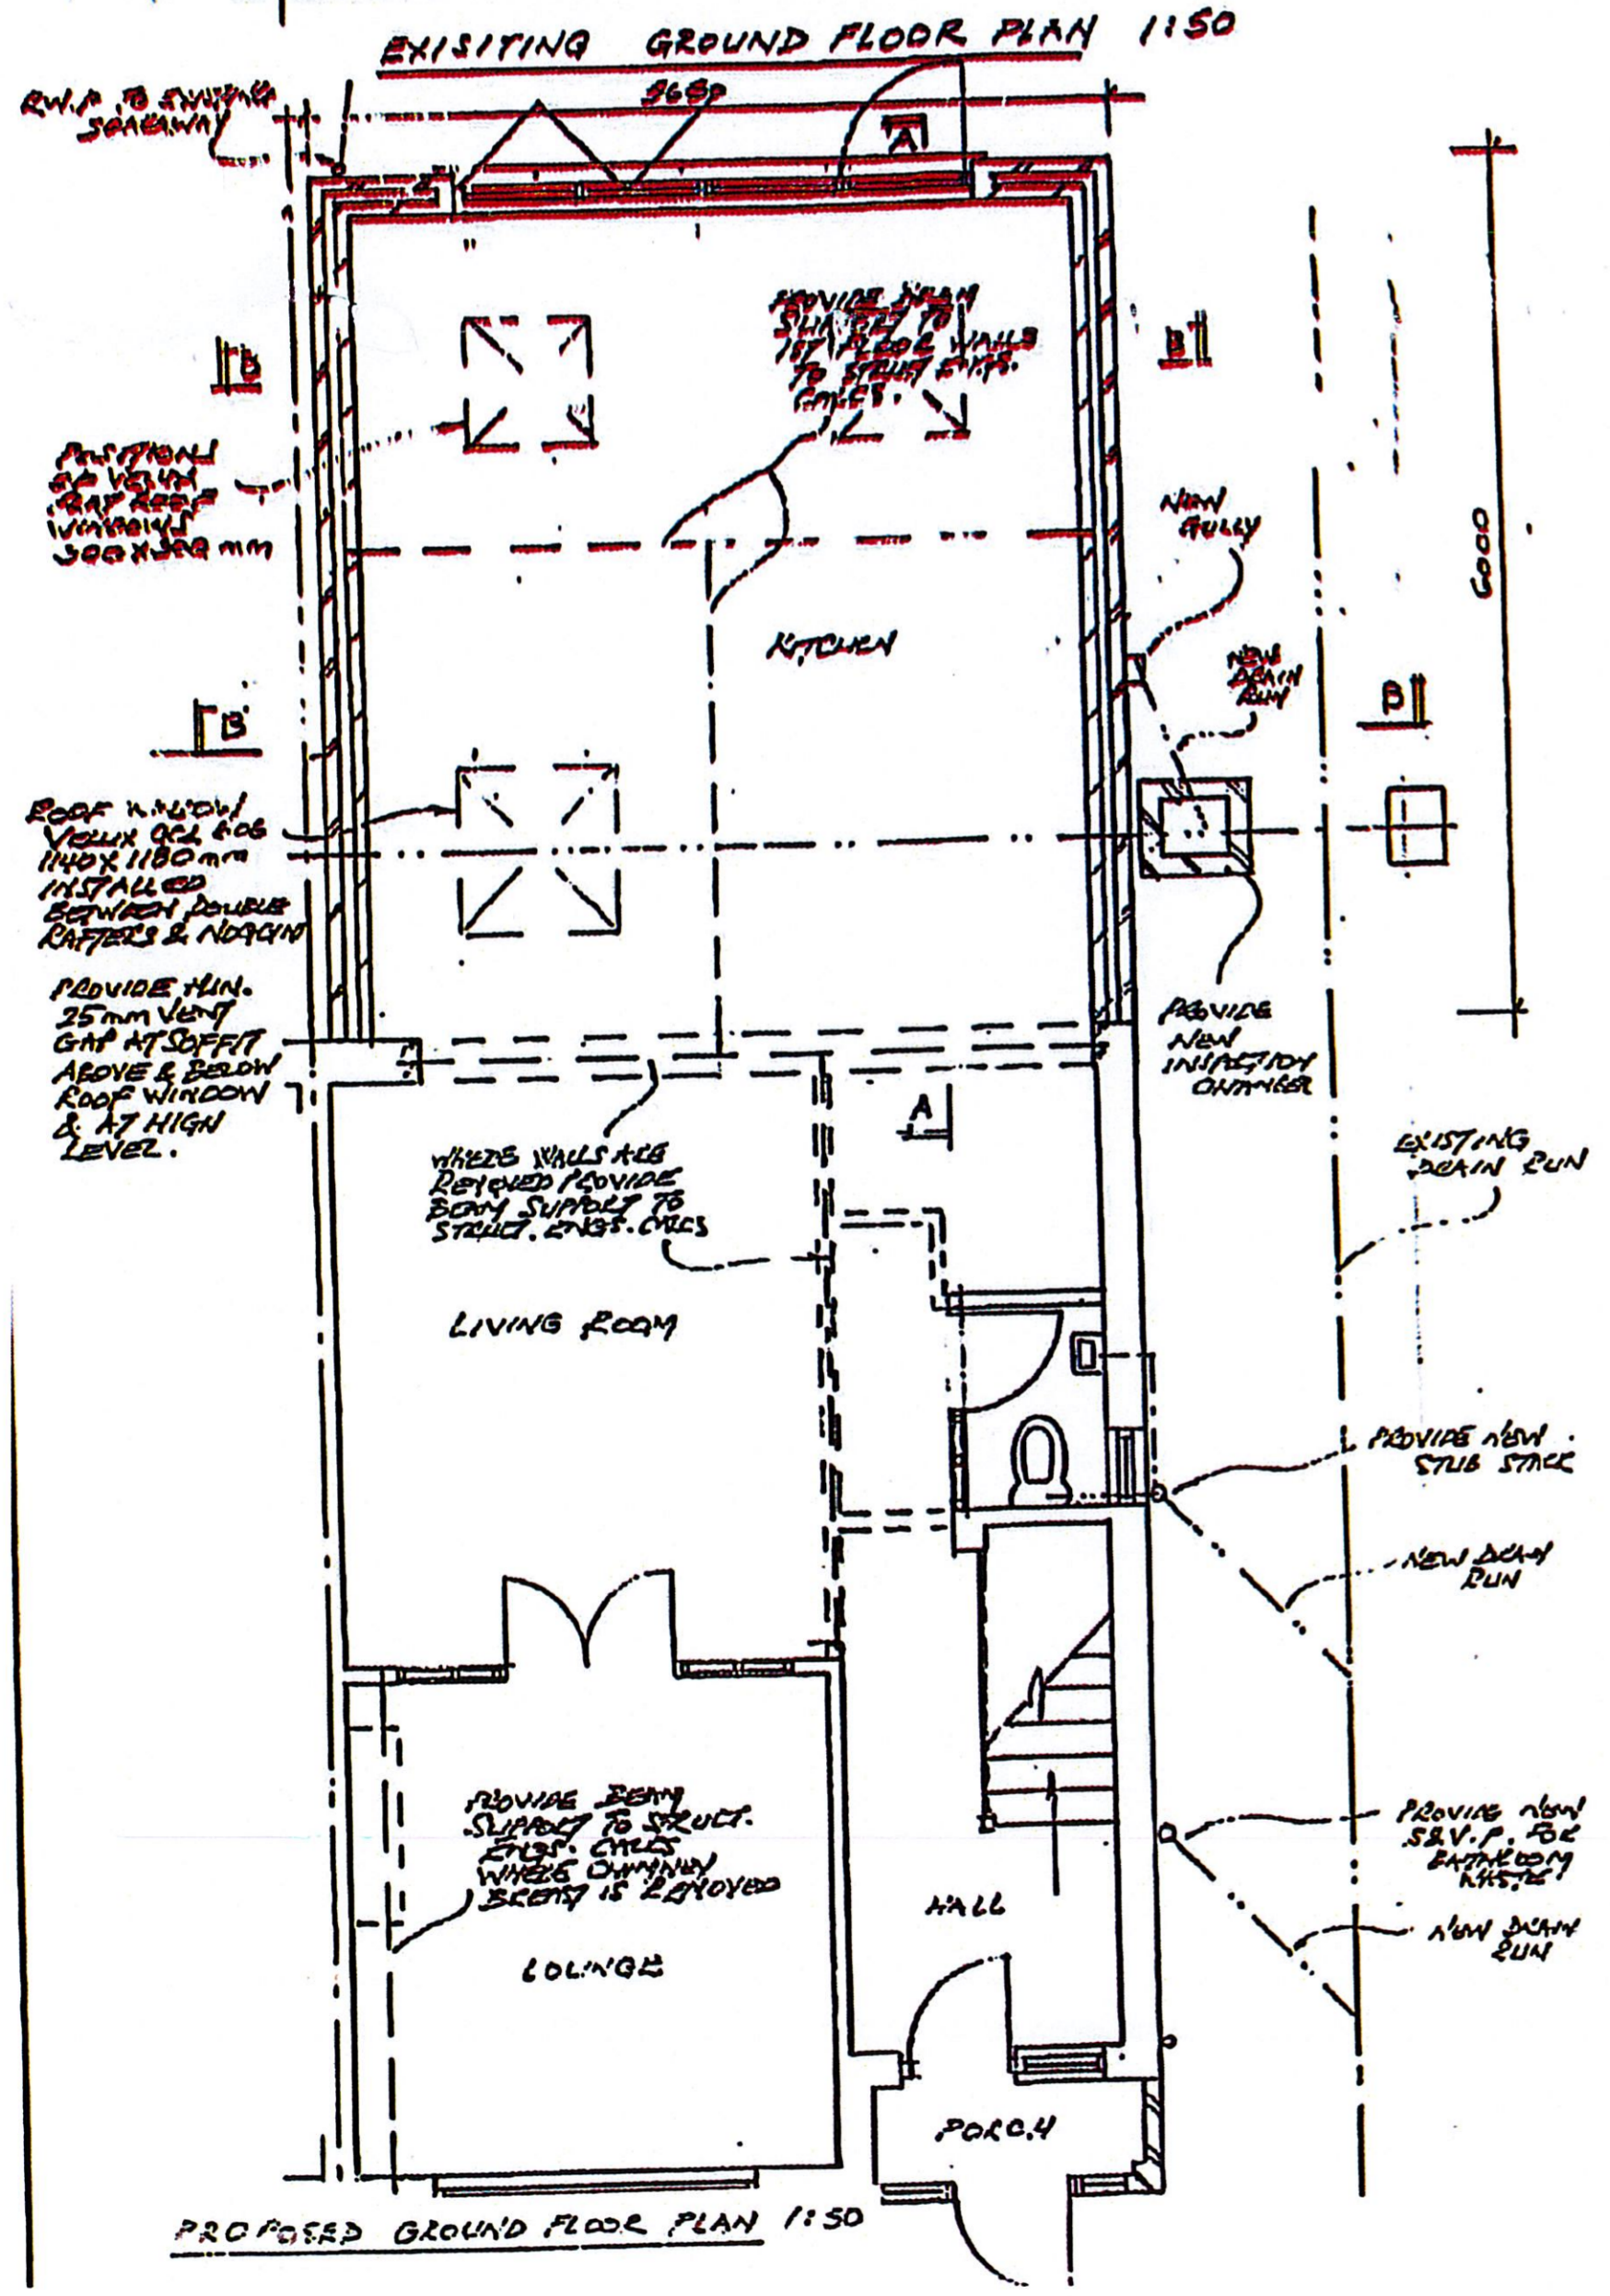 EXISITING GROUND FLOOR PLAN 1:50
R.W.P. TO
SOAKAWAY
A
B
B
PROVIDE BEAM
TO
1ST FLOOR WALLS
TO STRUCT ENGS.
CALCS.
POSITIONS
OF VELUX
ROOF
WINDOWS
mm
NEW
GULLY
6000
KITCHEN
NEW
DRAIN
RUN
B
B
ROOF WINDOW
VELUX
1140 X 1180 mm
INSTALLED
BETWEEN DOUBLE
RAFTERS & NOGGIN
PROVIDE MIN.
25mm VENT
GAP AT SOFFIT
ABOVE & BELOW
ROOF WINDOW
& AT HIGH
LEVEL.
PROVIDE
NEW
INSPECTION
CHAMBER
A
WHERE WALLS ARE
REMOVED PROVIDE
BEAM SUPPORT TO
STRUCT. ENGS. CALCS
EXISTING
DRAIN RUN
LIVING ROOM
PROVIDE NEW
STUB STACK
NEW DRAIN
RUN
PROVIDE BEAM
SUPPORT TO STRUCT.
ENGS. CALCS
WHERE CHIMNEY
BREAST IS REMOVED
PROVIDE NEW
S&V.P. FOR
BATHROOM
NEW DRAIN
RUN
HALL
LOUNGE
PORCH
PROPOSED GROUND FLOOR PLAN 1:50